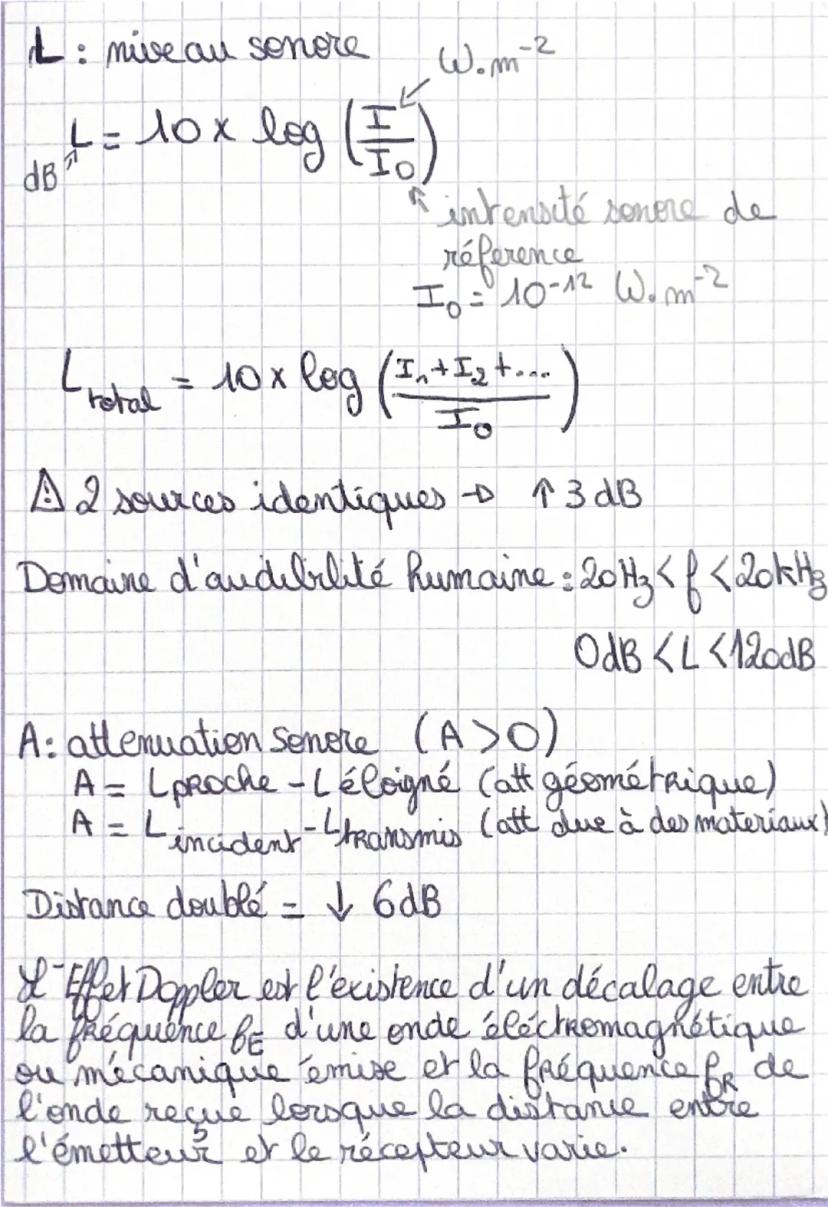 L : niveau sonore
W.m⁻²
L = 10 x log (I/I₀)
dB
intensité sonore de
réference
I₀ = 10⁻¹² W.m⁻²
L total = 10 x log ((I₁+I₂+...)/I₀)
⚠ 2 sources identiques → ↑ 3 dB
Domaine d'audibilité humaine : 20Hz < f < 20kHz
0dB < L < 120dB
A : attenuation sonore (A > 0)
A = L proche - L éloigné (att géométrique)
A = L incident - L transmis (att due à des materiaux)
Distance doublé = ↓ 6dB
L'Effet Doppler est l'existence d'un décalage entre
la fréquence fE d'une onde éléctromagnétique
ou mécanique émise et la fréquence fR de
l'onde reçue lorsque la distance entre
l'émetteur et le récepteur varie.